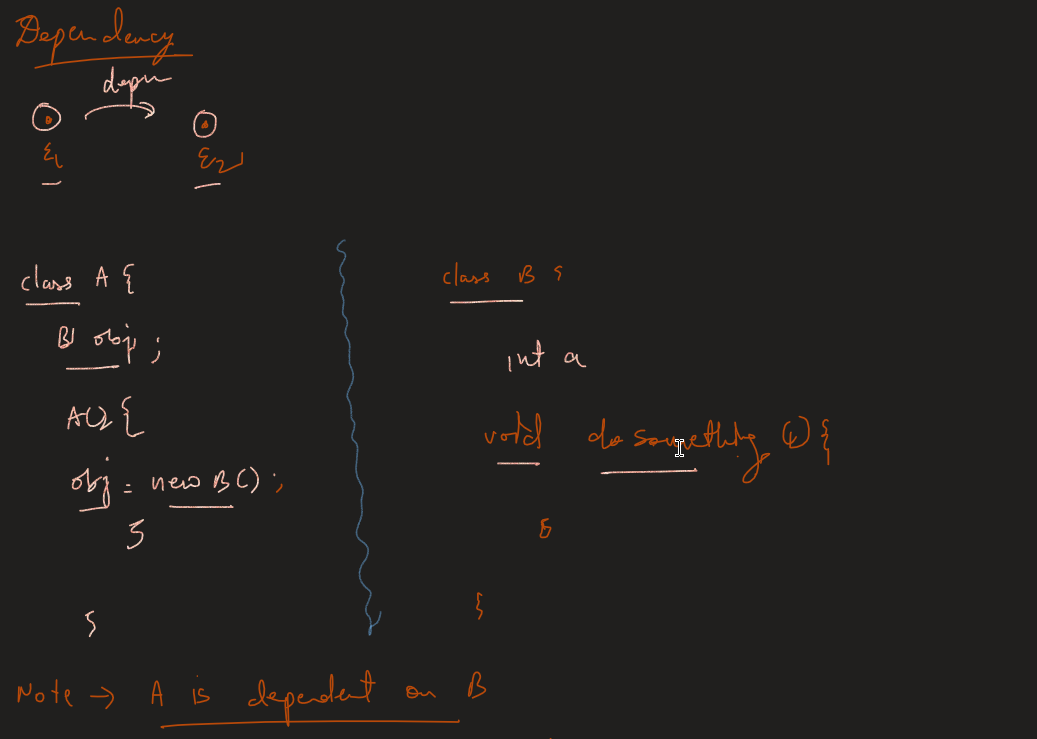 Dependency
depn
E1
E2
class A {
B obj ;
A() {
obj = new B() ;
}
}
class B {
int a
void do something () {
}
}
Note → A is dependent on B